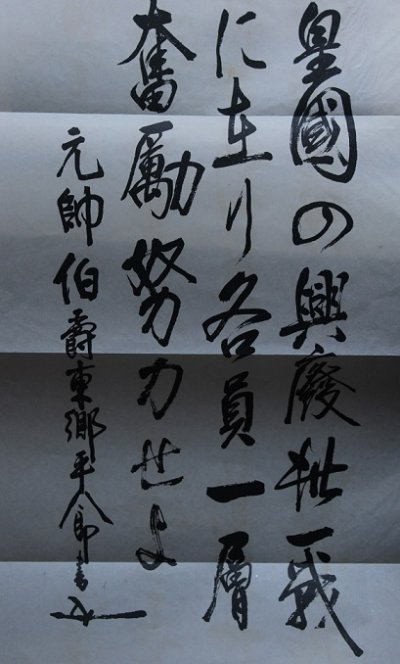 皇國の興廢此一戰
に在り各員一層
奮勵努力せよ
元帥伯爵東郷平八郎書